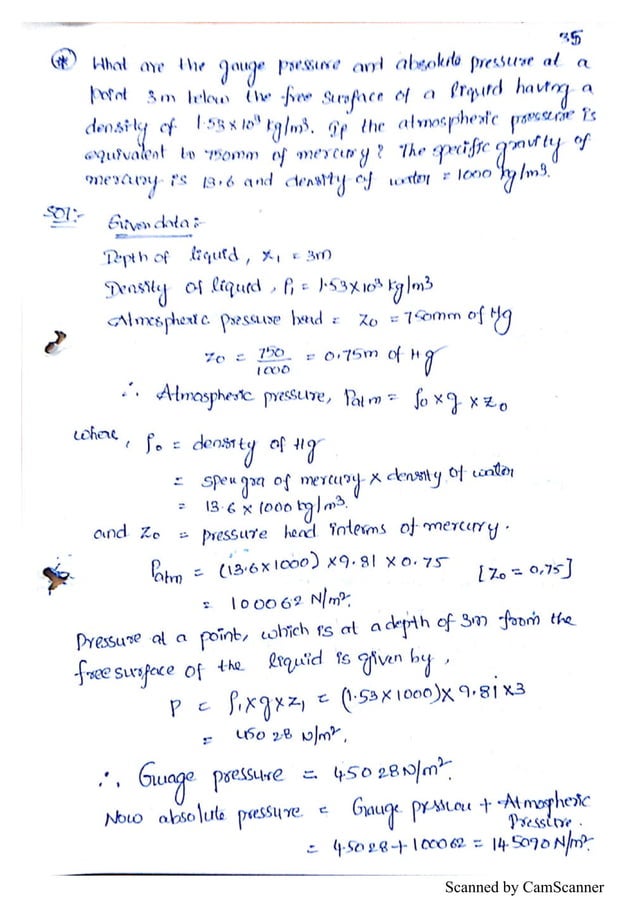 35
* What are the gauge pressure and absolute pressure at a
point 3m below the free surface of a liquid having a
density of 1.53×10³ kg/m3. If the atmospheric pressure is
equivalent to 750mm of mercury? The specific gravity of
mercury is 13.6 and density of water = 1000 kg/m3.
Sol:- Given data:-
Depth of liquid, x₁ = 3m
Density of liquid, ρ₁ = 1.53×10³ kg/m3
Atmospheric pressure head = Z₀ = 750mm of Hg
Z₀ = 750/1000 = 0.75m of Hg
∴ Atmospheric pressure, Patm = ρ₀ × g × Z₀
where, ρ₀ = density of Hg
= spe gra of mercury × density of water
= 13.6 × 1000 kg/m³.
and Z₀ = pressure head interms of mercury.
Patm = (13.6×1000) × 9.81 × 0.75 [Z₀ = 0.75]
= 100062 N/m².
Pressure at a point, which is at a depth of 3m from the
free surface of the liquid is given by,
P = ρ₁×g×z₁ = (1.53×1000)× 9.81×3
= 45028 N/m².
∴ Gwage pressure = 45028 N/m².
Now absolute pressure = Gauge + Atmospheric
Pressure.
= 45028+100062 = 145090 N/m².
Scanned by CamScanner